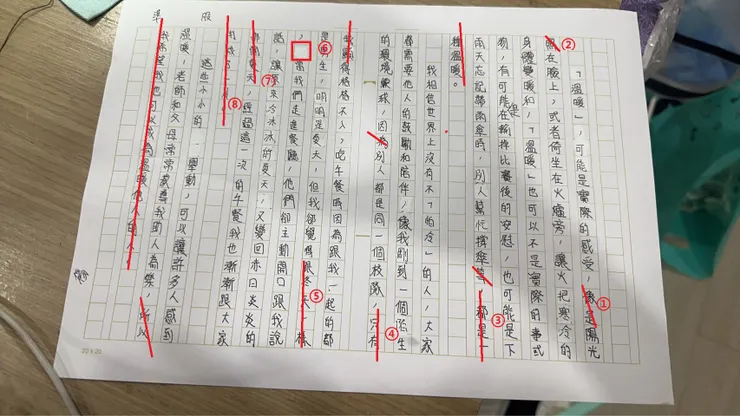 「溫暖」，可能是實際的感受，像是陽光
照在臉上，或者倚坐在火爐旁，讓火把寒冷的
身體變暖和，「溫暖」也可以不是實際的事或
物，有可能在輸掉比賽後的安慰，也可能是下
雨天忘記帶雨傘時，別人幫忙撐傘等，都是一
種溫暖。
我相信世界上沒有不「怕冷」的人，大家
都需要他人的鼓勵和陪伴，像我剛到一個陌生
的環境 ，因為別人都是同一個校隊，只有
我顯得格格不入，吃午餐時因為跟我一起的都
是 生，明明是夏天，但我卻覺得跟冬天一樣
，當我們走進餐廳，他們卻主動開口跟我說
話，讓原來冷冰冰的夏天，又變回赤日炎炎的
夏天，經過這一次的午餐我也漸漸跟大家
這些小小的 舉動，可以讓許多人感到
溫暖，老師和父母常常教導我助人為樂，所以
我希望我也可以成為溫暖他人的人
準
服
①
②
③
④
⑤
⑥
⑦
⑧
20 x 20